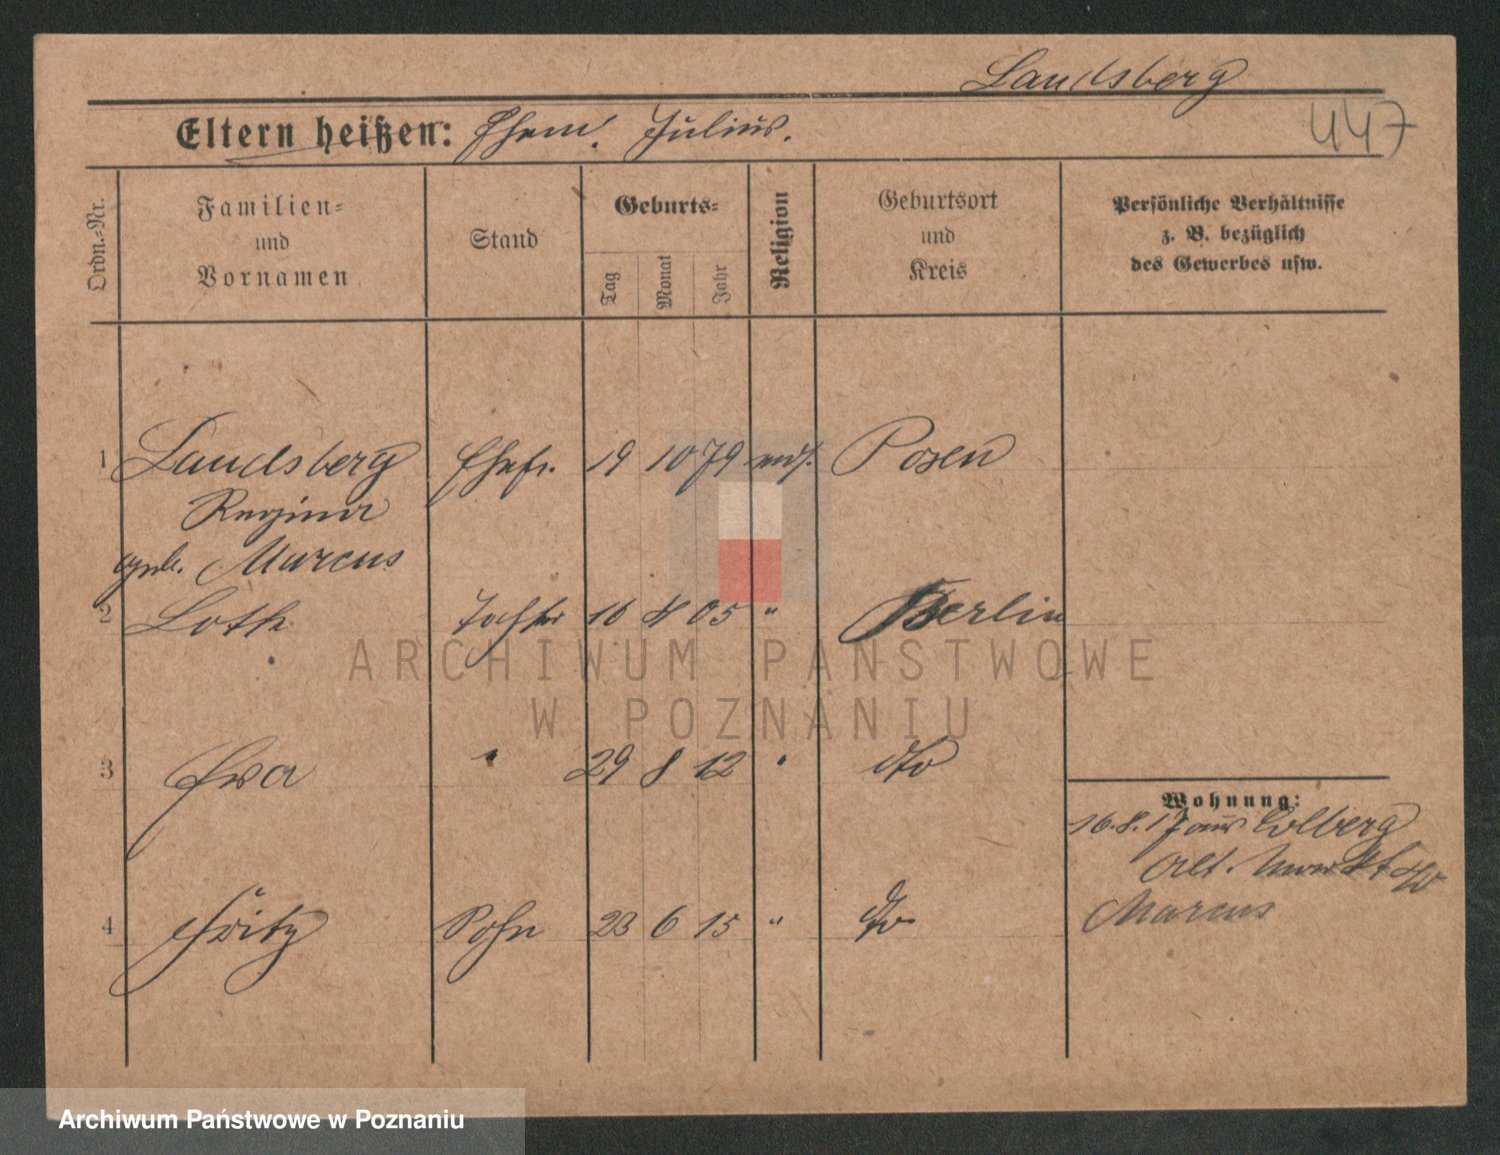 Landsberg
447
Eltern heißen: Ehem. Julius.
Ordn.-Nr.
Familien-
und
Vornamen
Stand
Geburts-
Tag
Monat
Jahr
Religion
Geburtsort
und
Kreis
Persönliche Verhältnisse
z. B. bezüglich
des Gewerbes usw.
1 Landsberg Ehefr. 19 10 79 mos. Posen
Regina
geb. Marcus
2 Tochter 16 05 " Berlin
3 Eva " 29 8 12 " dto
4 Fritz Sohn 23 6 15 " dto
Wohnung:
16.8.17 aus Colberg
Alt. Markt
Marcus
ARCHIWUM PAŃSTWOWE
W POZNANIU
Archiwum Państwowe w Poznaniu